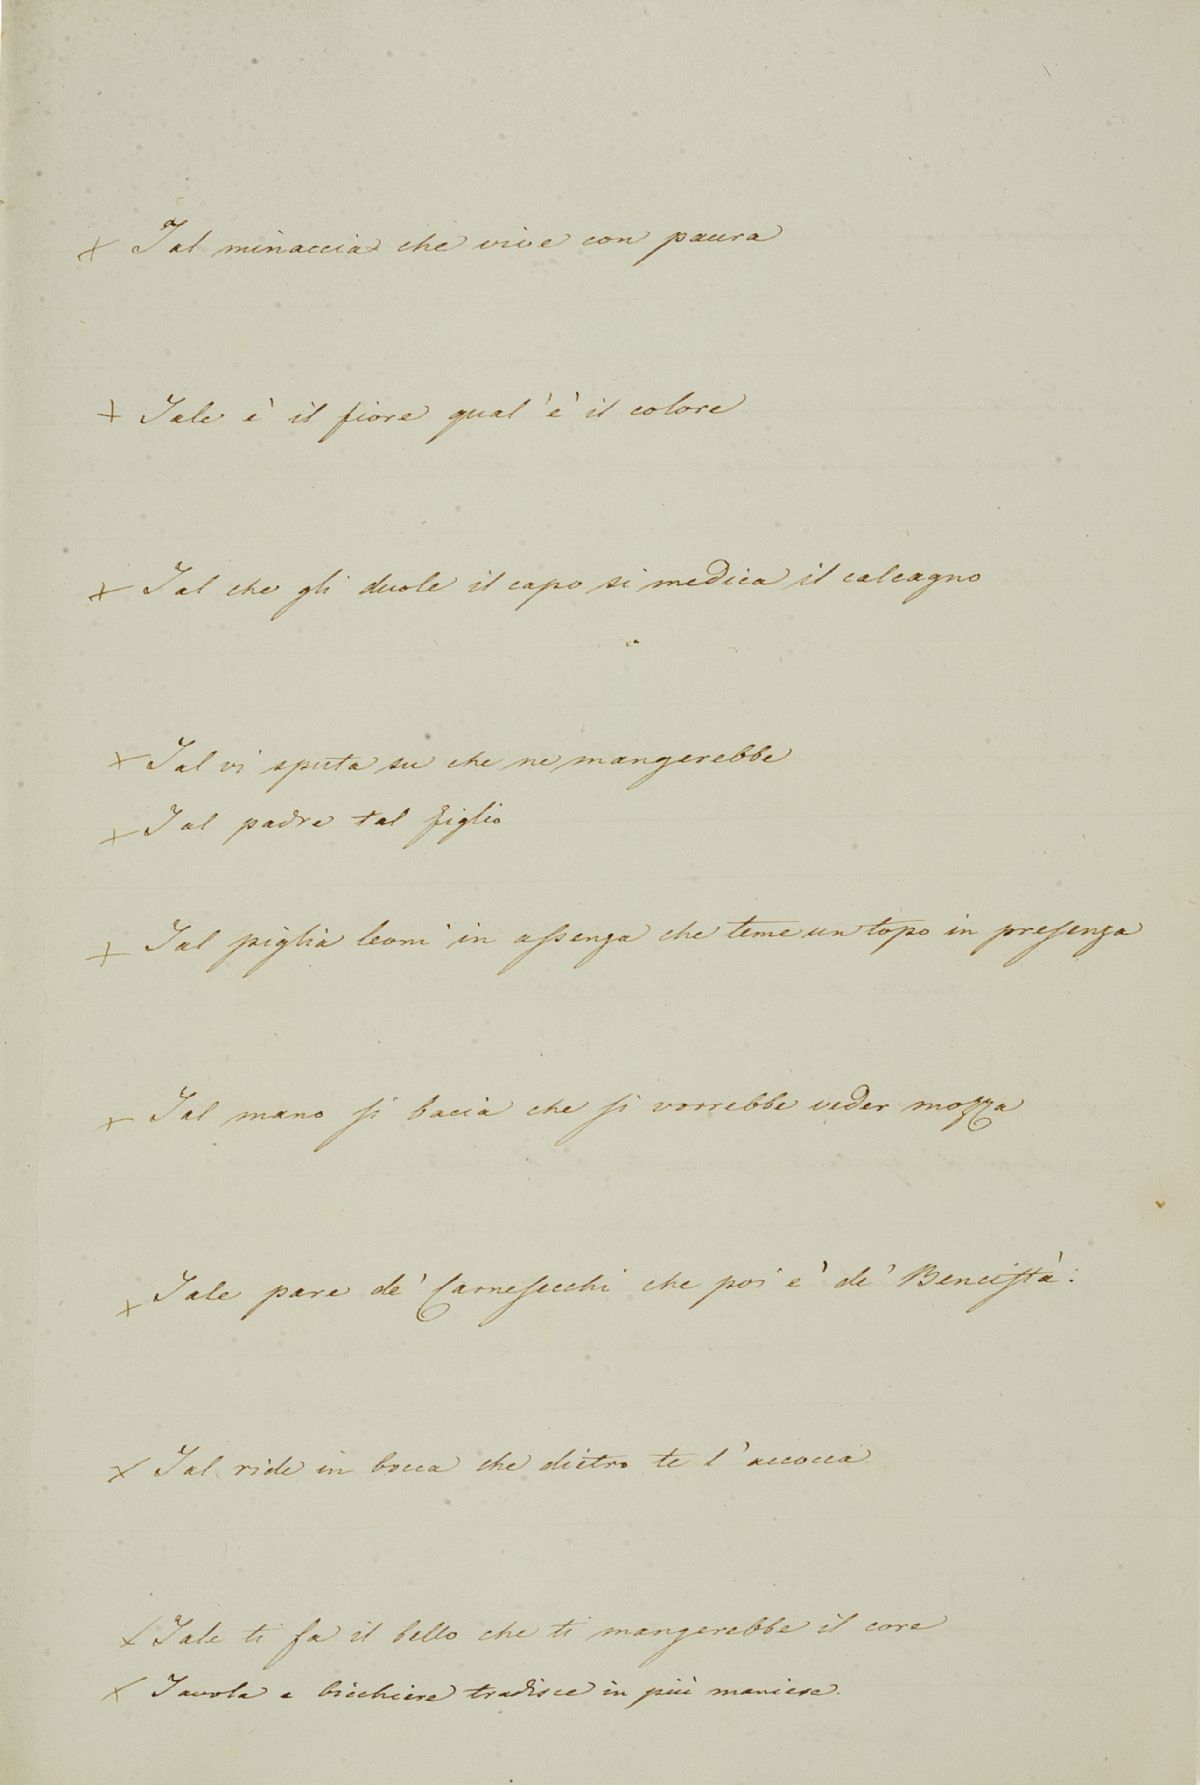 × Tal minaccia che vive con paura
+ Tale è il fiore qual'è il colore
+ Tal che gli duole il capo si medica il calcagno
× Tal vi sputa su che ne mangerebbe
+ Tal padre tal figlio
+ Tal piglia leoni in assenza che teme un topo in presenza
+ Tal mano si bacia che si vorrebbe veder mozza
× Tale pare de' Carnesecchi che poi è de' Bencistà:
× Tal ride in bocca che dietro te l'accocca
× Tale ti fa il bello che ti mangerebbe il core
× Tavola e bicchiere tradisce in più maniere.